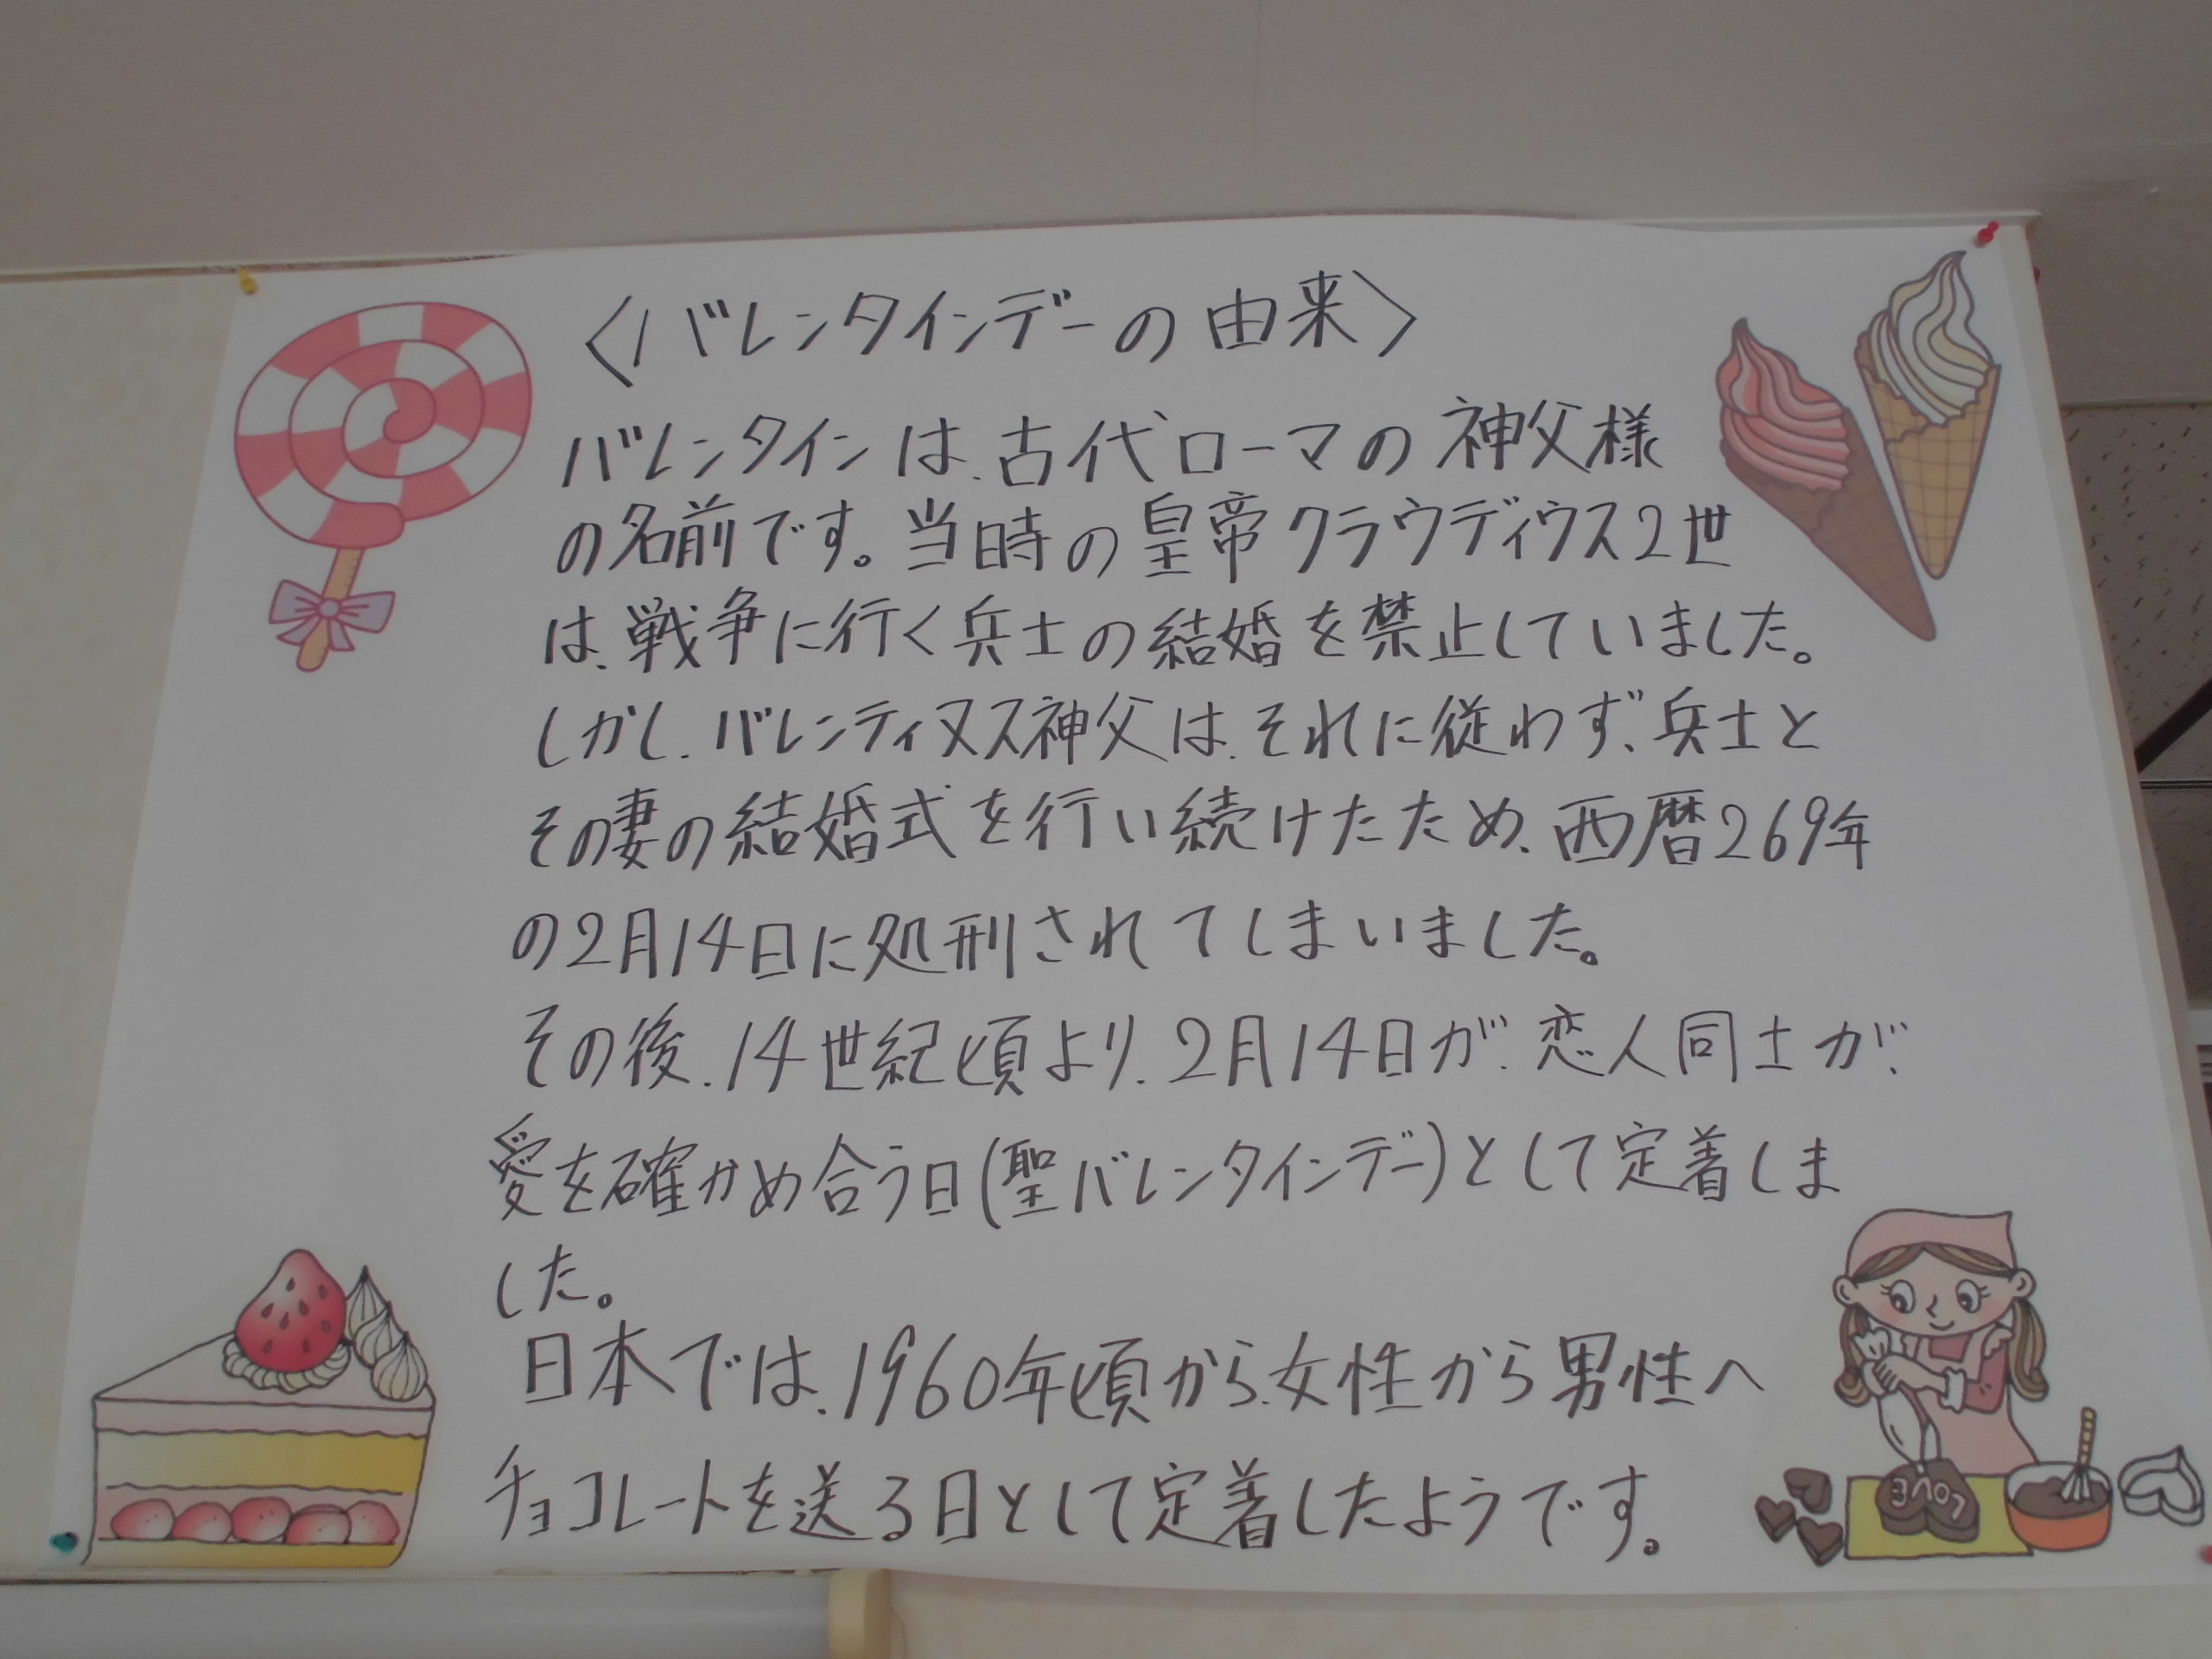 〈バレンタインデーの由来〉
バレンタインは、古代ローマの神父様
の名前です。当時の皇帝クラウディウス2世
は、戦争に行く兵士の結婚を禁止していました。
しかし、バレンティヌス神父は、それに従わず、兵士と
その妻の結婚式を行い続けたため、西暦269年
の2月14日に処刑されてしまいました。
その後、14世紀頃より、2月14日が、恋人同士が、
愛を確かめ合う日(聖バレンタインデー)として定着しま
した。
日本では、1960年頃から、女性から男性へ
チョコレートを送る日として定着したようです。
LOVE